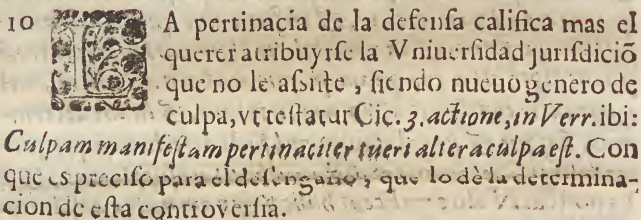 10 LA pertinacia de la defensa califica mas el
querer atribuyrse la Vniuersidad jurisdiciō
que no le assiste, siendo nueuo genero de
culpa, vt testatur Cic. 3. actione, in Verr. ibi:
Culpam manifestam pertinaciter tueri altera culpa est. Con
que es preciso para el desengaño, que lo dè la determina-
cion de esta controversia.